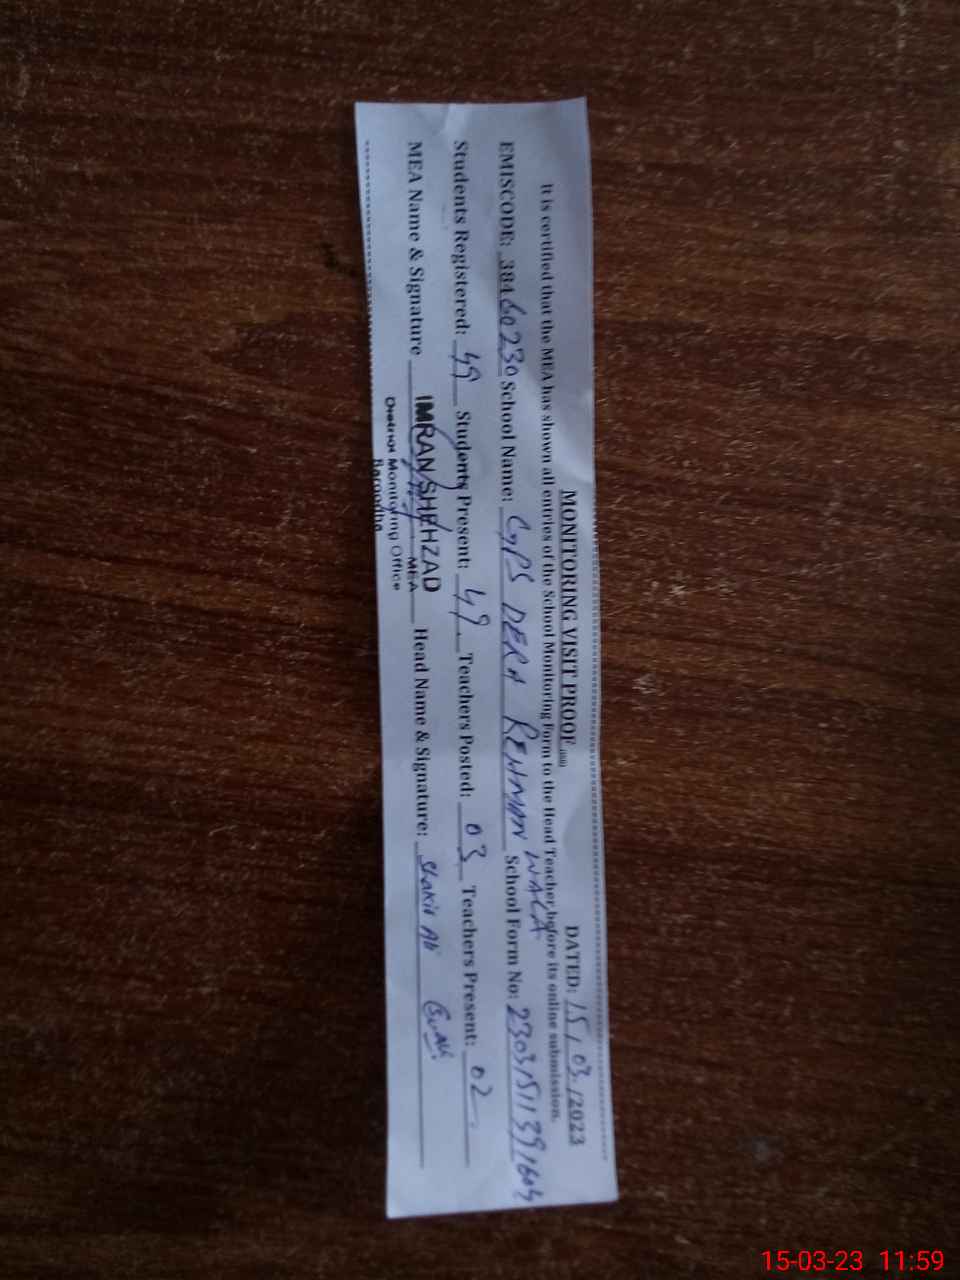 MONITORING VISIT PROOF
DATED: 15/03/2023
It is certified that the MEA has shown all entries of the School Monitoring Form to the Head Teacher before its online submission.
EMISCODE: 38460230 School Name: GPS DERA REHMAN WALA School Form No: 230315113916
Students Registered: 49 Students Present: 49 Teachers Posted: 03 Teachers Present: 02
MEA Name & Signature IMRAN SHEHZAD Head Name & Signature: Shakir Ali
MEA
District Monitoring Office
15-03-23 11:59